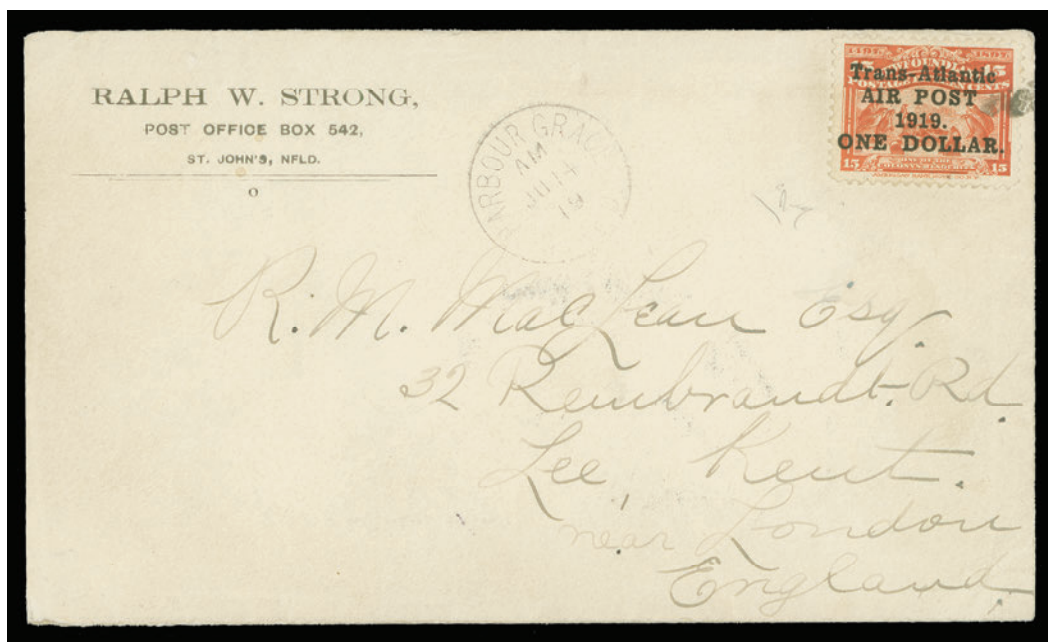 RALPH W. STRONG,
POST OFFICE BOX 542,
ST. JOHN'S, NFLD.
HARBOUR GRACE
AM
JU 14
19
1497 1897
15 15
Trans-Atlantic
AIR POST
1919.
ONE DOLLAR.
15 15
R. M. MacLean Esq
32 Rembrandt Rd
Lee, Kent.
near London
England